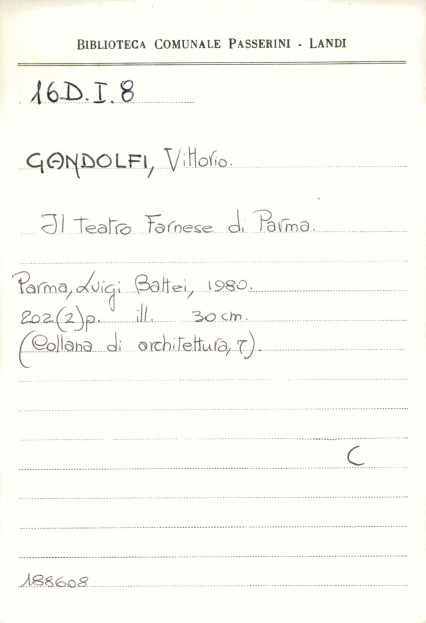 BIBLIOTECA COMUNALE PASSERINI - LANDI
16D.I.8
GANDOLFI, Vittorio.
Il Teatro Farnese di Parma.
Parma, Luigi Battei, 1980.
202(2)p. ill. 30 cm.
(Collana di architettura, 7).
C
188608